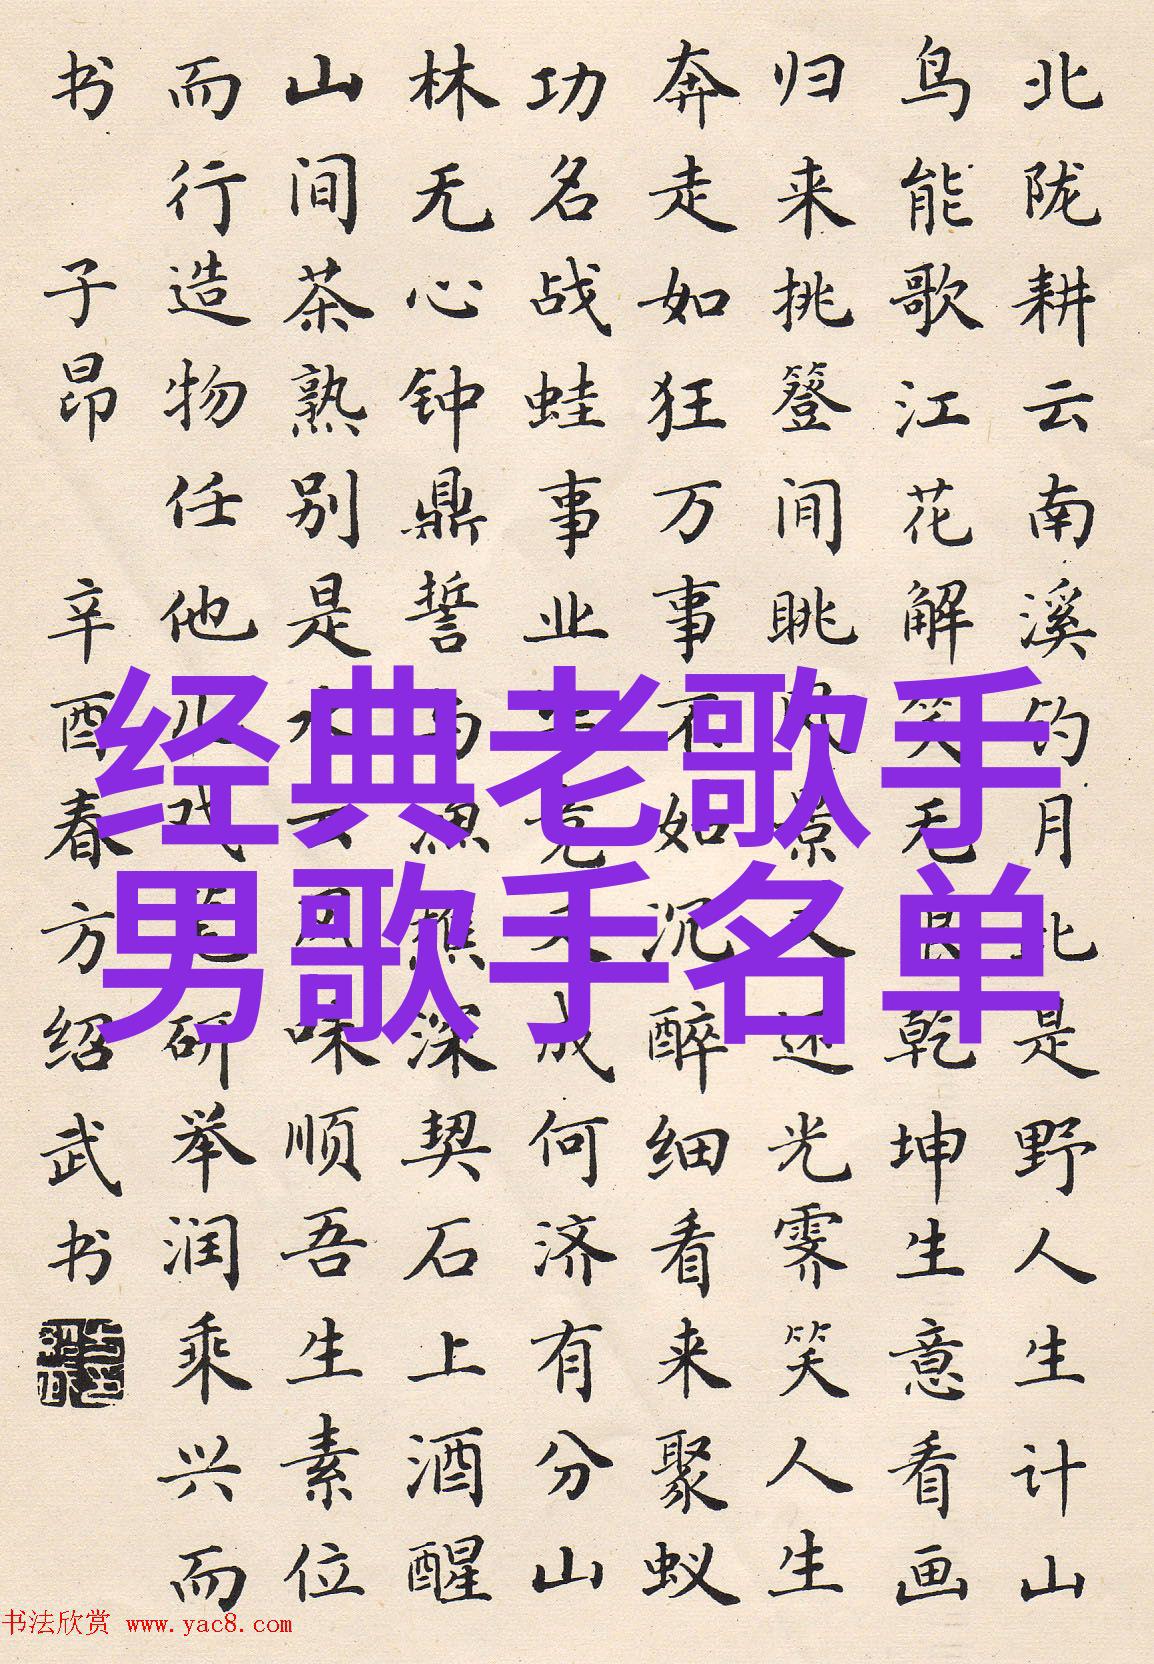 北陇耕云南溪钓月此是野人生计山
鸟能歌江花解笑无限乾坤生意看画
归来挑簦闲眺风景又还光霁笑人生
奔走如狂万事不如沉醉细看来聚蚁
功名战蛙事业毕竟又成何济有分山
林无心钟鼎誓与渔樵深契石上酒醒
山间茶熟别是水云风味顺吾生素位
而行造物任他儿戏笔研举润乘兴而
书 子昂 辛酉春方绍武书
经典老歌手
男歌手名单
书法欣赏 www.yac8.com